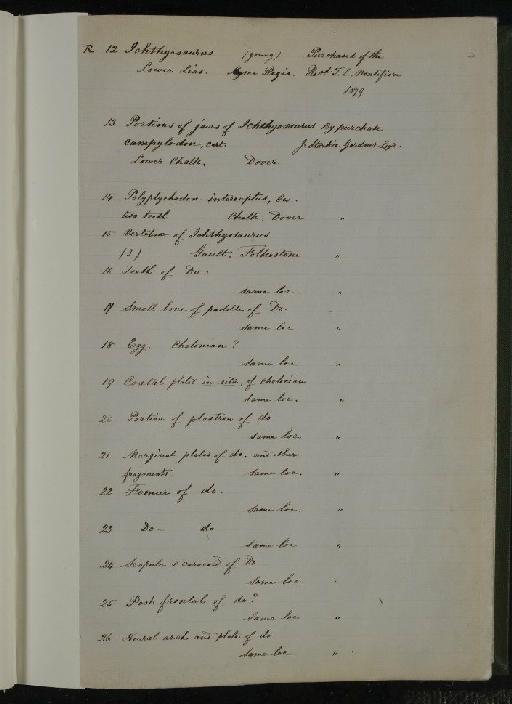 R. 12 Ichthyosaurus (young) Purchased of the
Lower Lias. Lyme Regis. T. C.
1879
13 Portions of jaws of Ichthyosaurus By purchase
campylodon, Lower Chalk. Dover. J. Starkie Gardner Esqr.
14 Polyptychodon interruptus, Ow.
two teeth Chalk. Dover "
15 Vertebrae of Ichthyosaurus
(3) Gault. Folkestone "
16 Teeth of Do.
same loc. "
17 Small bone of paddle of Do.
same loc "
18 Egg. Chelonian?
same loc "
19 Costal plates in situ, of chelonian
same loc. "
20 Portion of plastron of do
same loc "
21 Marginal plates of do. and other
fragments same loc. "
22 Femur of do.
same loc. "
23 Do - do
same loc "
24 Scapula & coracoid of Do
same loc "
25 Post frontal of do?
same loc "
26 Neural arch and plate of do
same loc "